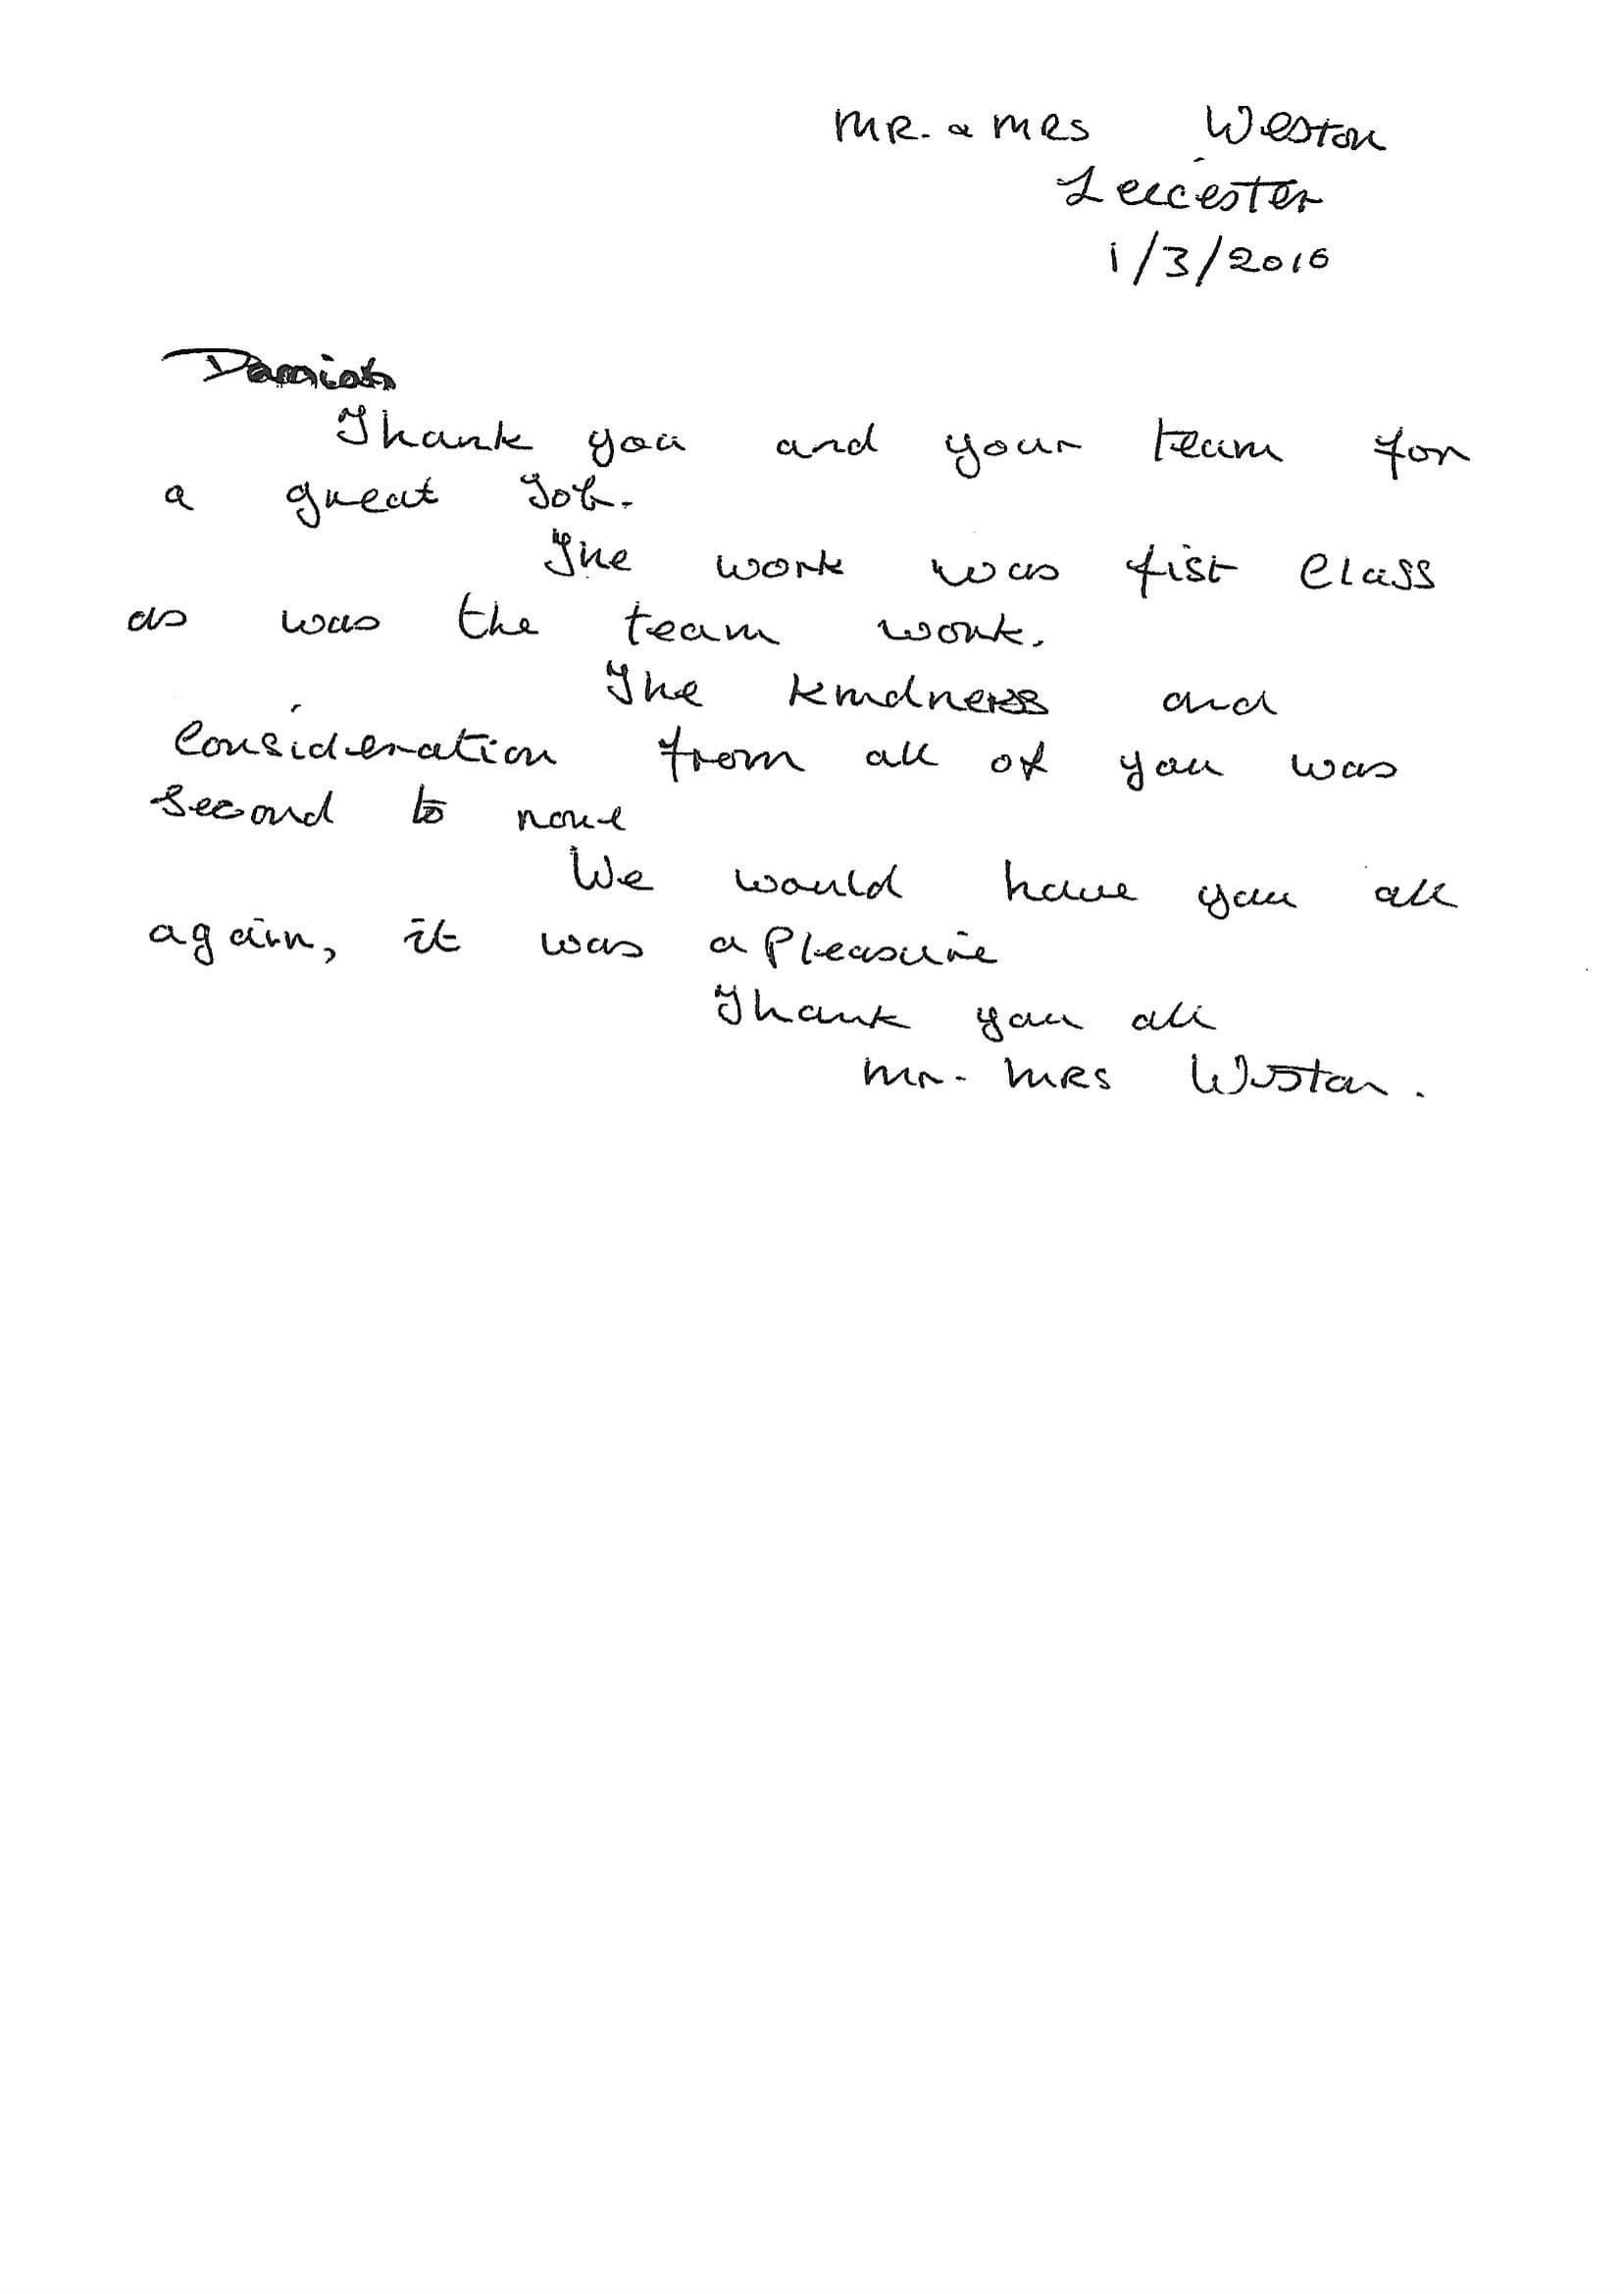 MR. & MRS Weston
Leicester
1/3/2016
Damian
Thank you and your team for
a great Job.
The work was fist Class
as was the team work.
The kindness and
Consideration from all of you was
Second to none
We would have you all
again, it was a Pleasure
Thank you all
Mr. MRS Weston.